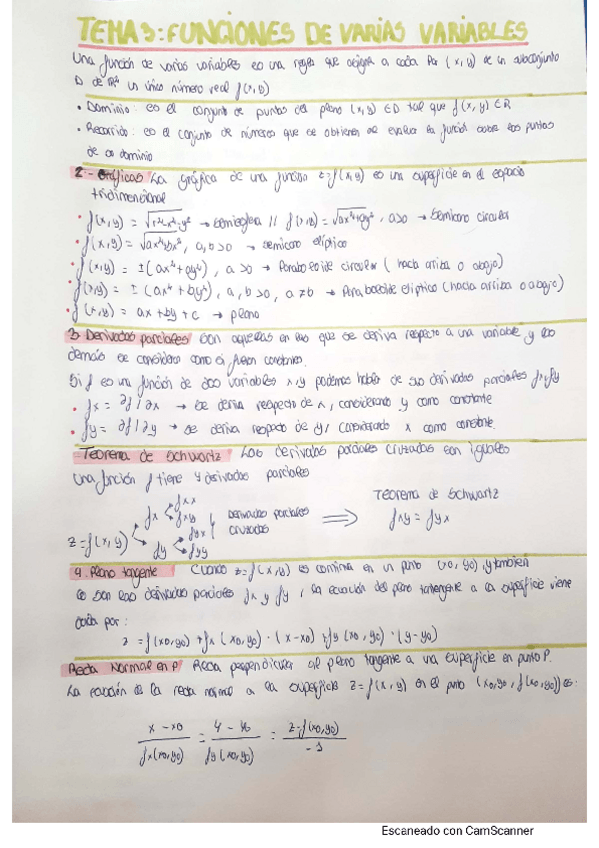 TEMA 3: FUNCIONES DE VARIAS VARIABLES
Una función de varias variables es una regla que asigna a cada Par (x, y) de un subconjunto
D de R² un único número real f(x, y)
• Dominio: es el conjunto de puntos del plano (x, y) ∈ D tal que f(x, y) ∈ R
• Recorrido: es el conjunto de números que se obtienen al evaluar la función sobre los puntos
de su dominio
2.- Gráficas La gráfica de una función z = f(x, y) es una superficie en el espacio
tridimensional
• f(x, y) = √r²-x²-y² → semiesfera // f(x, y) = √ax²+ay², a>0 → Semicono circular
• f(x, y) = √ax²+bx², a, b>0 → semicono elíptico
• f(x, y) = ±(ax²+ay²), a>0 → Paraboloide circular (hacia arriba o abajo)
• f(x, y) = ±(ax²+by²), a, b>0, a≠b → Paraboloide elíptico (hacia arriba o abajo)
• f(x, y) = ax + by + c → plano
3. Derivadas parciales Son aquellas en las que se deriva respecto a una variable y las
demás se consideran como si fuesen constantes.
Si f es una función de dos variables x, y podemos hablar de sus derivadas parciales fx, fy
• fx = ∂f / ∂x → se deriva respecto de x, considerando y como constante
• fy = ∂f / ∂y → se deriva respecto de y, considerando x como constante
Teorema de Schwartz Las derivadas parciales cruzadas son iguales
Una función f tiene 4 derivadas parciales
z = f(x, y) fx fxx fxy fy fyx fyy derivadas parciales cruzadas ⟹ Teorema de Schwartz
fxy = fyx
4. Plano tangente Cuando z = f(x, y) es continua en un punto (x0, y0), y también
lo son las derivadas parciales fx y fy, la ecuación del plano tangente a la superficie viene
dada por:
z = f(x0, y0) + fx (x0, y0) · (x - x0) + fy (x0, y0) · (y - y0)
Recta Normal en P Recta perpendicular al plano tangente a una superficie en punto P.
La ecuación de la recta normal a la superficie z = f(x, y) en el punto (x0, y0, f(x0, y0)) es:
x - x0 / fx(x0, y0) = y - y0 / fy(x0, y0) = z - f(x0, y0) / -1
Escaneado con CamScanner